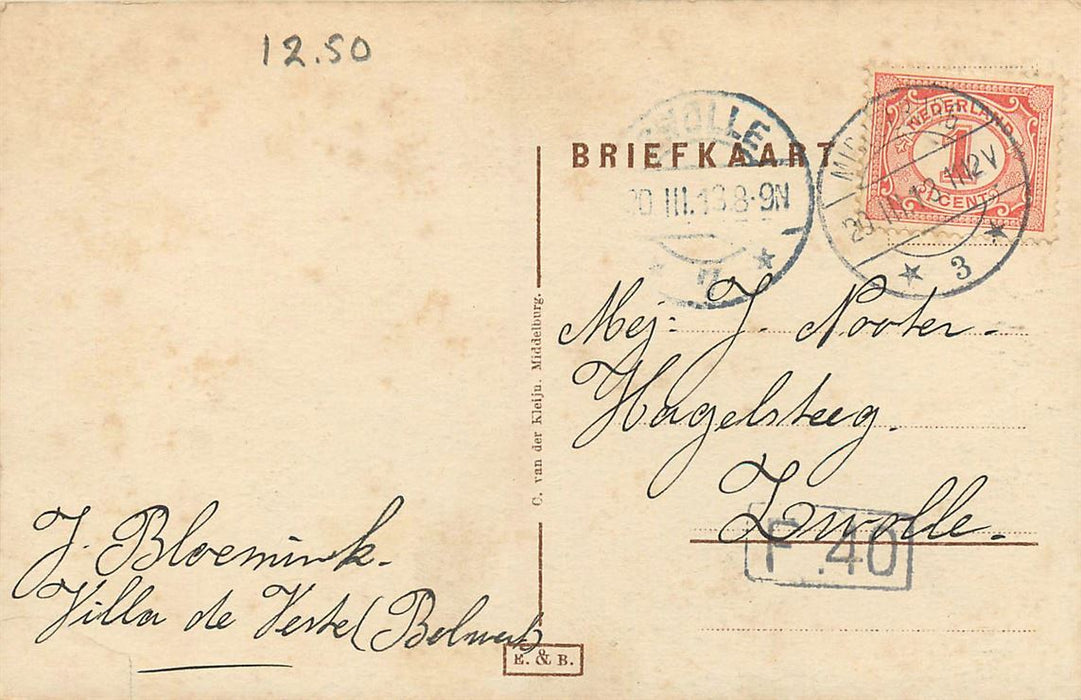 12.50
BRIEFKAART
NEDERLAND
1
CENT
20 III.13.8-9N
20.III.13.11-12V
3
C. van der Kleijn. Middelburg.
Mej: J. Nooter.
Hagelsteeg.
Zwolle.
F .40
J. Bloemink.
Villa de Veste (Bolwerk)
E. & B.